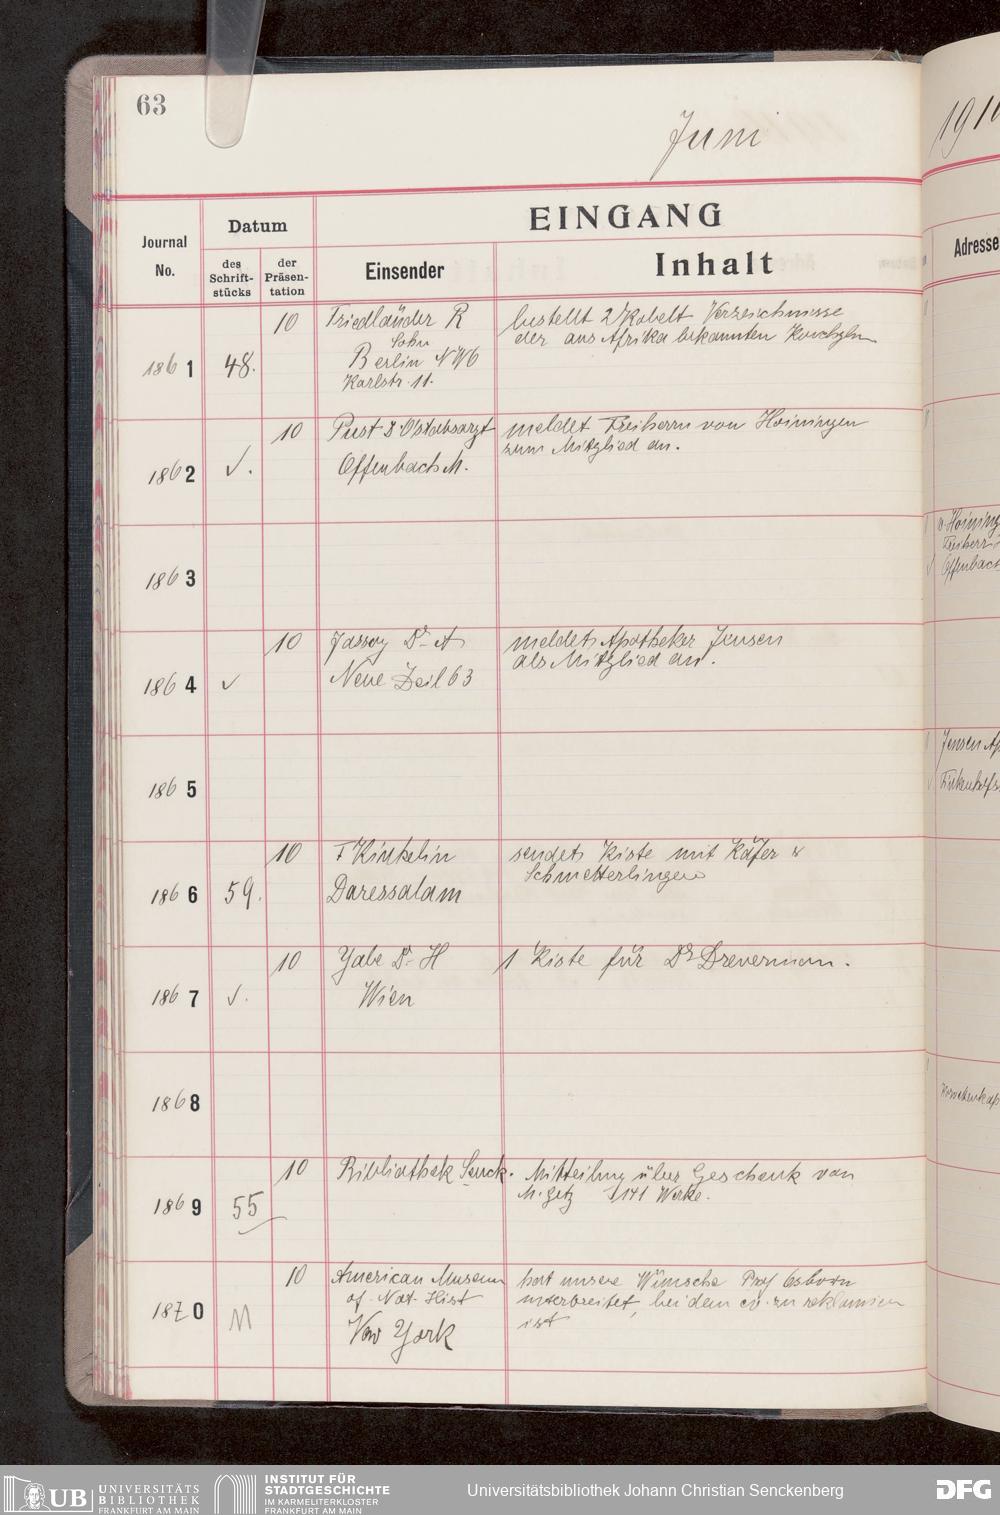 63
Juni
191
Journal
No.
Datum
des
Schrift-
stücks
der
Präsen-
tation
EINGANG
Einsender
Inhalt
Adresse
1861
48.
10
Friedländer R
Sohn
Berlin NW6
Karlstr. 11.
bestellt 2 Kobelt Verzeichnisse
der aus Afrika bekannten Konchylien
1862
✓.
10
Pust Dr Oberstabsarzt
Offenbach M.
meldet Freiherrn von Hoiningen
zum Mitglied an.
1863
v. Hoining
Freiherr
Offenbach
1864
✓
10
Jassoy Dr A
Neue Zeil 63
meldet Apotheker Jensen
als Mitglied an.
1865
Jensen Ap
1866
59.
10
F Kinkelin
Daressalam
sendet Kiste mit Käfer &
Schmetterlingen
1867
✓.
10
Yabe Dr H
Wien
1 Kiste für Dr Drevermann.
1868
1869
55
10
Bibliothek Senck.
Mitteilung über Geschenk von
M. Getz 1141 Werke.
1870
M
10
American Museum
of Nat. Hist
New York
hat unsere Wünsche Prof Osborn
unterbreitet, bei dem ev. zu reklamieren
ist
UB
UNIVERSITÄTS
BIBLIOTHEK
FRANKFURT AM MAIN
INSTITUT FÜR
STADTGESCHICHTE
IM KARMELITERKLOSTER
FRANKFURT AM MAIN
Universitätsbibliothek Johann Christian Senckenberg
DFG